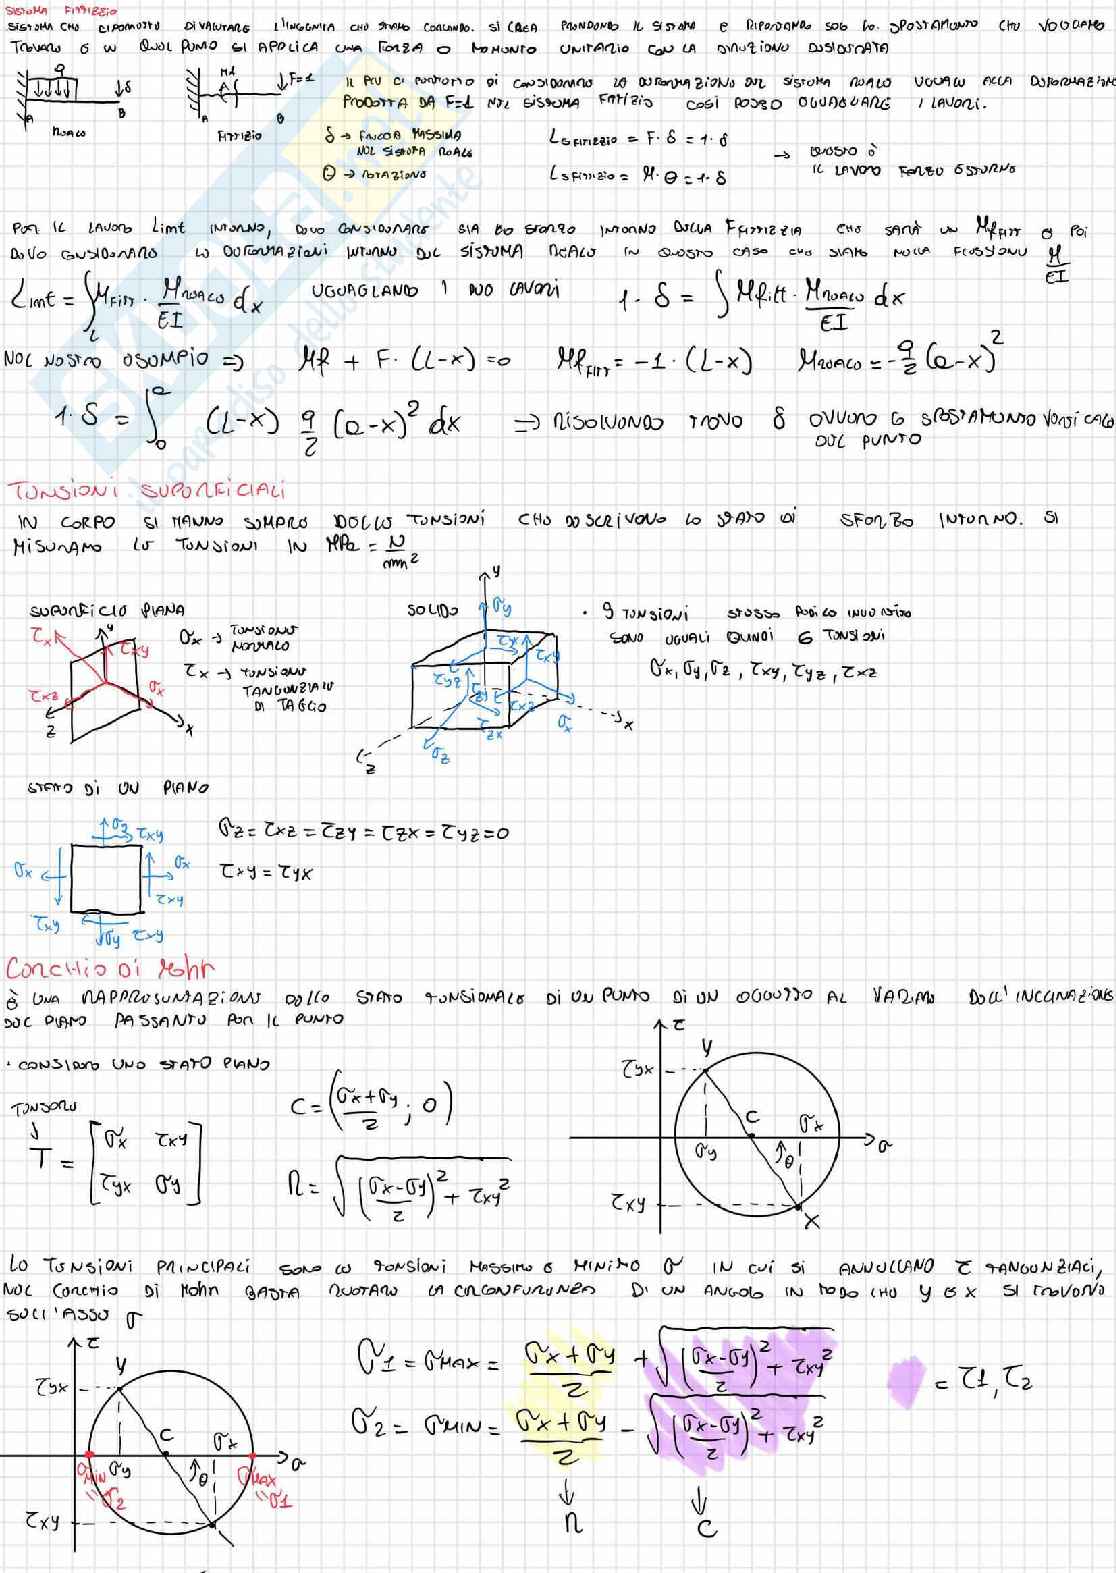 SISTEMA FITTIZIO
SISTEMA CHE CI PERMETTE DI VALUTARE L'INCOGNITA CHE STIAMO CERCANDO. SI CREA PRENDENDO IL SISTEMA E RIPORTANDO SOLO LO SPOSTAMENTO CHE VOGLIAMO
TROVARE E IN QUEL PUNTO SI APPLICA UNA FORZA O MOMENTO UNITARIO CON LA DIREZIONE DESIDERATA
q δ A B REALE
M1 F=1 A B FITTIZIO
IL PLV CI PERMETTE DI CONSIDERARE LA DEFORMAZIONE DEL SISTEMA REALE UGUALE ALLA DEFORMAZIONE
PRODOTTA DA F=1 NEL SISTEMA FITTIZIO COSÌ POSSO UGUAGLIARE I LAVORI.
δ → FRECCIA MASSIMA NEL SISTEMA REALE
θ → ROTAZIONE
LSFITTIZIO = F·δ = 1·δ
LSFITTIZIO = M·θ = 1·δ
→ QUESTO È IL LAVORO FORZE ESTERNO
PER IL LAVORO Lint INTERNO, DEVO CONSIDERARE SIA LO SFORZO INTERNO DELLA FFITTIZIA CHE SARÀ UN MfFITT E POI
DEVO CONSIDERARE LE DEFORMAZIONI INTERNE DEL SISTEMA REALE IN QUESTO CASO CHE SIAMO NELLA FLESSIONE M/EI
Lint = ∫L MFITT · MREALE/EI dx UGUAGLIANDO I DUE LAVORI 1·δ = ∫ Mfitt · MREALE/EI dx
NEL NOSTRO ESEMPIO ⇒ Mf + F·(L-x)=0 MfFITT = -1·(L-x) MREALE = -q/2 (a-x)²
1·δ = ∫₀ᵃ (L-x) q/2 (a-x)² dx ⇒ RISOLVENDO TROVO δ OVVERO LO SPOSTAMENTO VERTICALE
DEL PUNTO
TENSIONI SUPERFICIALI
IN CORPO SI HANNO SEMPRE DELLE TENSIONI CHE DESCRIVONO LO STATO DI SFORZO INTERNO. SI
MISURANO LE TENSIONI IN MPa = N/mm²
SUPERFICIE PIANA
τx y τxy τxz σx z x
σx → TENSIONE NORMALE
τx → TENSIONE TANGENZIALE DI TAGLIO
SOLIDO
y σy τyx τxy τyz τxz τzx σx σz x z
· 9 TENSIONI STESSO PEDICE INVERTITO
SONO UGUALI QUINDI 6 TENSIONI
σx, σy, σz, τxy, τyz, τxz
STATO DI UN PIANO
σz = τxz = τzy = τzx = τyz = 0
τxy = τyx
σ2 τxy
σx σx
τxy τxy
σy τxy
CERCHIO DI Mohr
È UNA RAPPRESENTAZIONE DELLO STATO TENSIONALE DI UN PUNTO DI UN OGGETTO AL VARIARE DELL'INCLINAZIONE
DEL PIANO PASSANTE PER IL PUNTO
· CONSIDERO UNO STATO PIANO
TENSORE
↓
T = [σx τxy
τyx σy]
C = (σx+σy/2 ; 0)
R = √((σx-σy/2)² + τxy²)
τ y τyx C σx σy θ σ τxy X
LE TENSIONI PRINCIPALI SONO LE TENSIONI MASSIME E MINIME σ IN CUI SI ANNULLANO τ TANGENZIALI,
NEL CERCHIO DI Mohr BASTA RUOTARE LA CIRCONFERENZA DI UN ANGOLO IN MODO CHE Y E X SI TROVINO
SULL'ASSE σ
τ y τyx C σx σ σMIN = σ2 σy θ σMAX = σ1 τxy
σ1 = σMAX = σx+σy/2 + √((σx-σy/2)² + τxy²) = τ1, τ2
σ2 = σMIN = σx+σy/2 - √((σx-σy/2)² + τxy²)
↓ ↓
R C